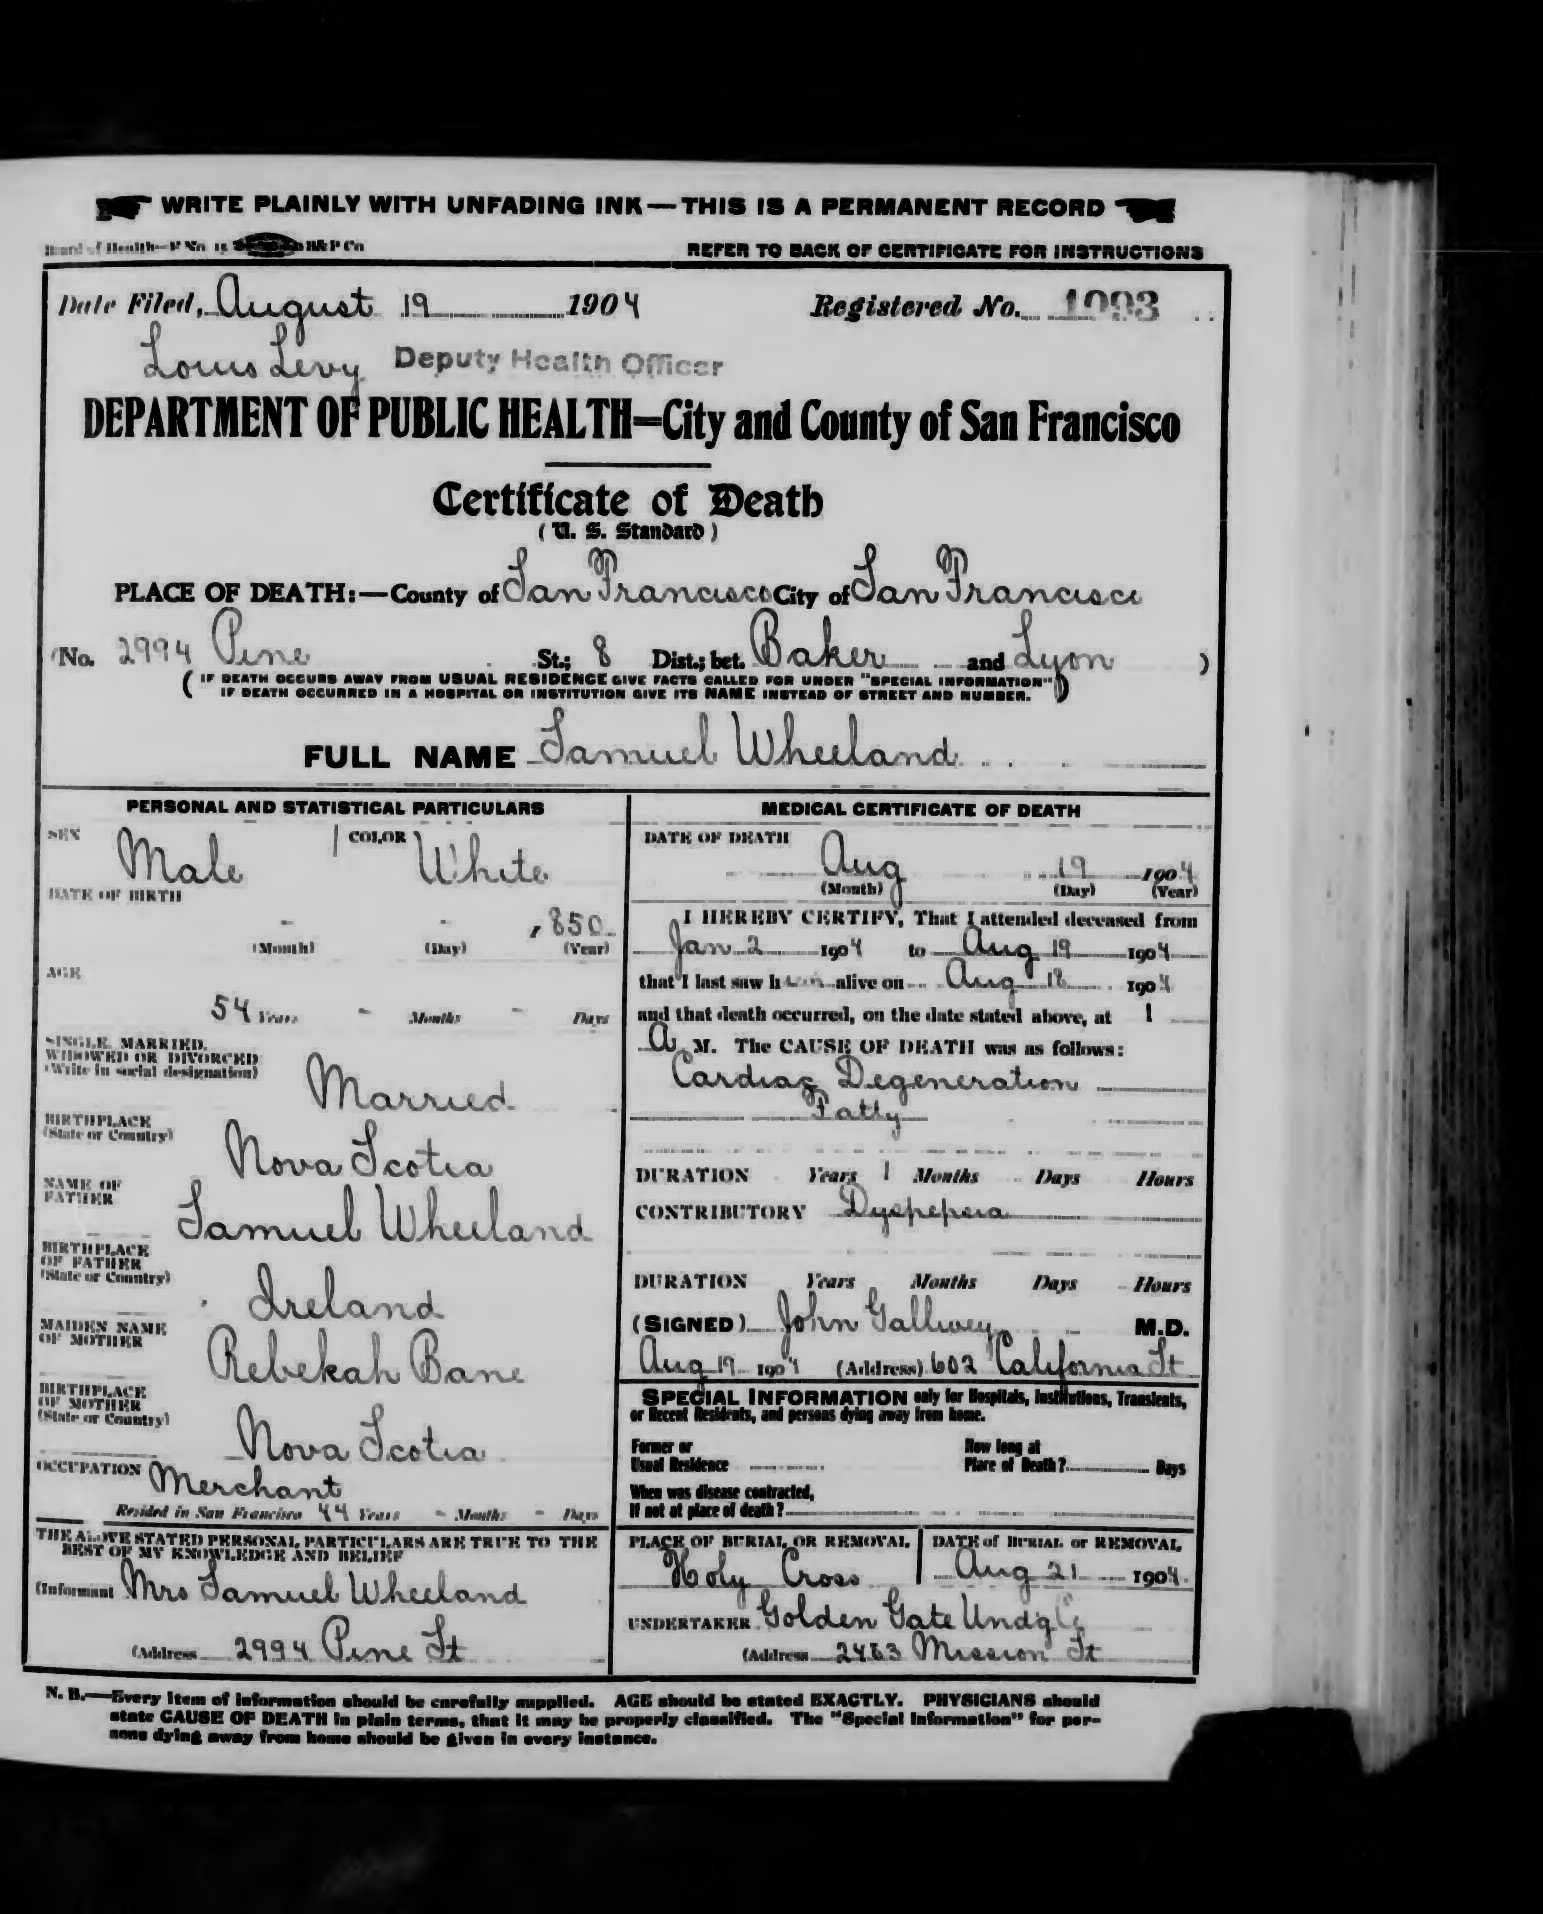 WRITE PLAINLY WITH UNFADING INK — THIS IS A PERMANENT RECORD
Board of Health—F No. 15 H&P Co
REFER TO BACK OF CERTIFICATE FOR INSTRUCTIONS
Date Filed, August 19 1904 Registered No. 1093
Louis Levy Deputy Health Officer
DEPARTMENT OF PUBLIC HEALTH=City and County of San Francisco
Certificate of Death
(U. S. Standard)
PLACE OF DEATH:—County of San Francisco City of San Francisco
(No. 2994 Pine St.; 8 Dist.; bet. Baker and Lyon )
( IF DEATH OCCURS AWAY FROM USUAL RESIDENCE GIVE FACTS CALLED FOR UNDER "SPECIAL INFORMATION" )
IF DEATH OCCURRED IN A HOSPITAL OR INSTITUTION GIVE ITS NAME INSTEAD OF STREET AND NUMBER.
FULL NAME Samuel Wheeland
PERSONAL AND STATISTICAL PARTICULARS
SEX Male COLOR White
DATE OF BIRTH
- - 1850
(Month) (Day) (Year)
AGE
54 Years - Months - Days
SINGLE, MARRIED,
WIDOWED OR DIVORCED
(Write in social designation)
Married
BIRTHPLACE
(State or Country)
Nova Scotia
NAME OF
FATHER
Samuel Wheeland
BIRTHPLACE
OF FATHER
(State or Country)
Ireland
MAIDEN NAME
OF MOTHER
Rebekah Bane
BIRTHPLACE
OF MOTHER
(State or Country)
Nova Scotia
OCCUPATION Merchant
Resided in San Francisco 44 Years - Months - Days
THE ABOVE STATED PERSONAL PARTICULARS ARE TRUE TO THE
BEST OF MY KNOWLEDGE AND BELIEF
(Informant Mrs Samuel Wheeland
(Address 2994 Pine St
MEDICAL CERTIFICATE OF DEATH
DATE OF DEATH
Aug 19 1904
(Month) (Day) (Year)
I HEREBY CERTIFY, That I attended deceased from
Jan 2 1904 to Aug 19 1904
that I last saw him alive on Aug 18 1904
and that death occurred, on the date stated above, at 1
A M. The CAUSE OF DEATH was as follows:
Cardiac Degeneration
Fatty
DURATION Years 1 Months Days Hours
CONTRIBUTORY Dyspepsia
DURATION Years Months Days Hours
(SIGNED) John Gallwey M.D.
Aug 19 1904 (Address) 602 California St
SPECIAL INFORMATION only for Hospitals, Institutions, Transients,
or Recent Residents, and persons dying away from home.
Former or
Usual Residence
How long at
Place of Death? Days
When was disease contracted,
If not at place of death?
PLACE OF BURIAL OR REMOVAL
Holy Cross
DATE of BURIAL or REMOVAL
Aug 21 1904
UNDERTAKER Golden Gate Undg Co
(Address 2463 Mission St
N. B.—Every item of information should be carefully supplied. AGE should be stated EXACTLY. PHYSICIANS should
state CAUSE OF DEATH in plain terms, that it may be properly classified. The "Special Information" for per-
sons dying away from home should be given in every instance.